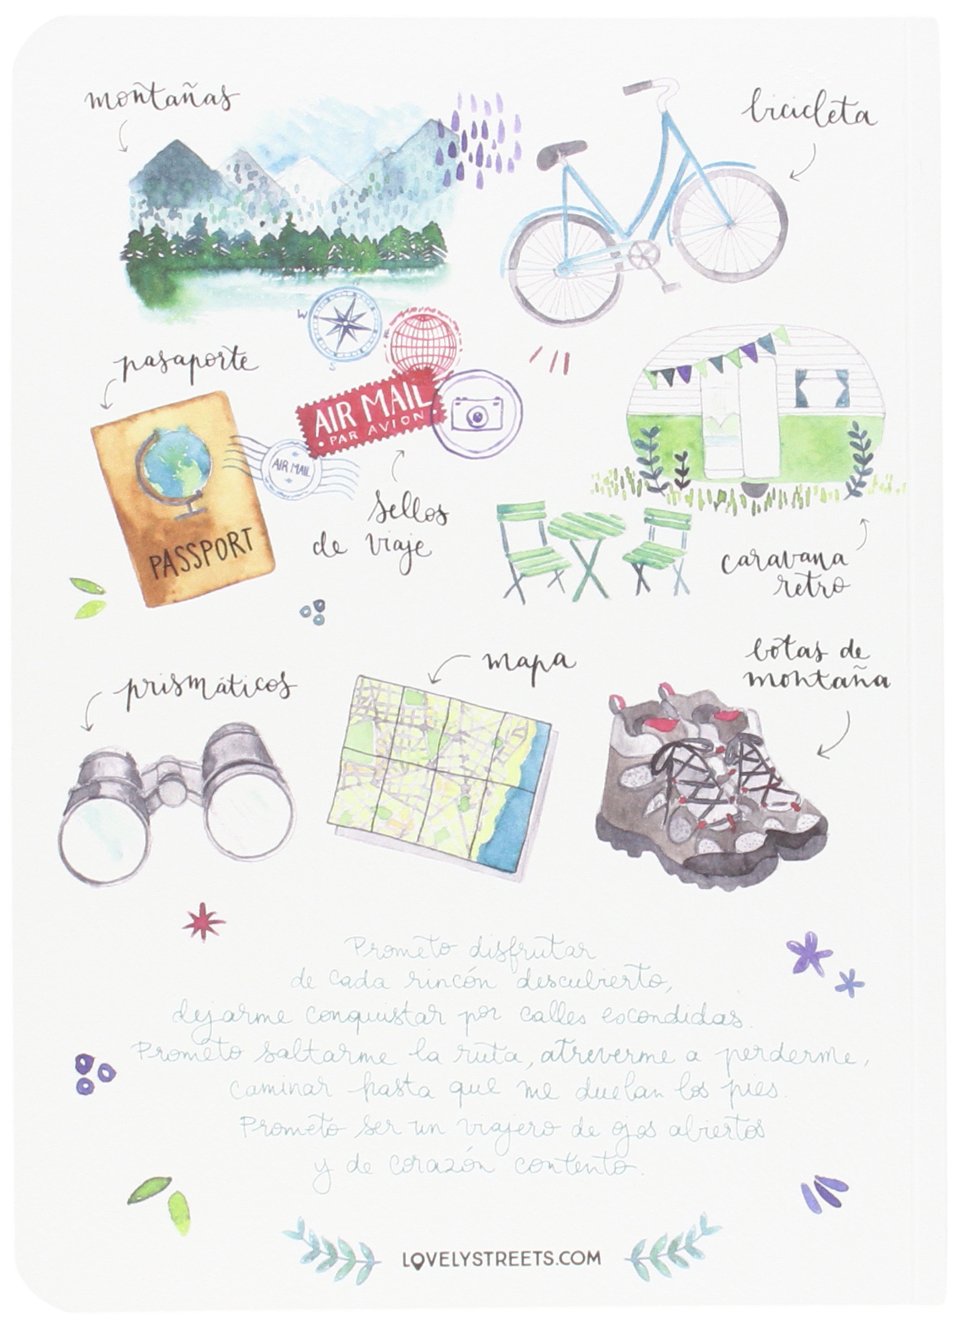 montañas
bicicleta
W
AIR MAIL
PAR AVION
pasaporte
AIR MAIL
PASSPORT
sellos
de viaje
caravana
retro
prismáticos
mapa
botas de
montaña
Prometo disfrutar
de cada rincón descubierto,
dejarme conquistar por calles escondidas.
Prometo saltarme la ruta, atreverme a perderme,
caminar hasta que me duelan los pies.
Prometo ser un viajero de ojos abiertos
y de corazón contento.
LOVELYSTREETS.COM